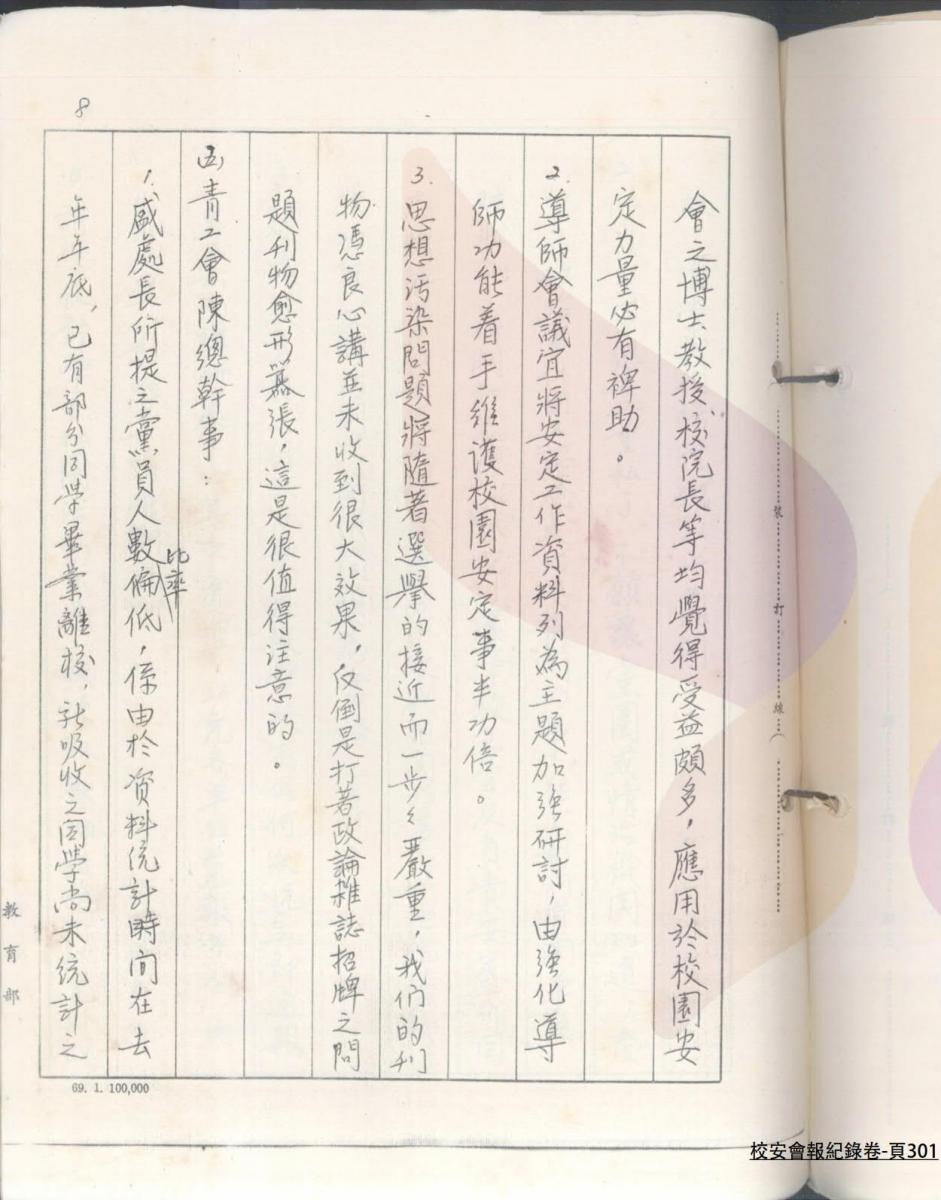 8
會之博士教授、校院長等均覺得受益頗多，應用於校園安
定力量必有裨助。
2.導師會議宜將安定工作資料列為主題加強研討，由強化導
師功能着手維護校園安定事半功倍。
3.思想污染問題將隨著選舉的接近而一步々嚴重，我们的刊
物憑良心講並未收到很大效果，反倒是打著政論雜誌招牌之問
題刊物愈形囂張，這是很值得注意的。
(五)青工會陳總幹事：
1.盛處長所提之黨員人數比率偏低，係由於资料統計時间在去
年年底，已有部分同学畢業離校，新吸收之同學尚未統計之
裝
訂
線
教育部
69. 1. 100,000
校安會報紀錄卷-頁301